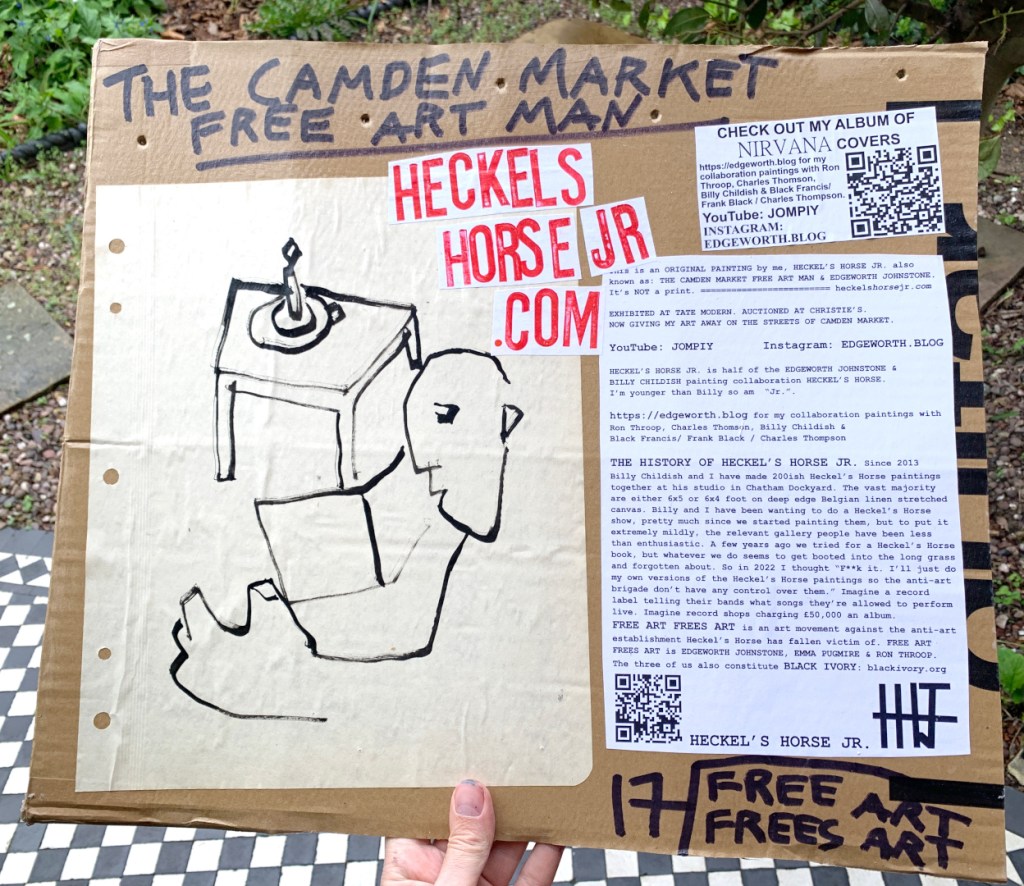 THE CAMDEN MARKET
FREE ART MAN
HECKELS
HORSE JR
.COM
CHECK OUT MY ALBUM OF
NIRVANA COVERS
https://edgeworth.blog for my
collaboration paintings with Ron
Throop, Charles Thomson,
Billy Childish & Black Francis/
Frank Black / Charles Thompson.
YouTube: JOMPIY
INSTAGRAM:
EDGEWORTH.BLOG
This is an ORIGINAL PAINTING by me, HECKEL'S HORSE JR. also
known as: THE CAMDEN MARKET FREE ART MAN & EDGEWORTH JOHNSTONE.
It's NOT a print. ========================== heckelshorsejr.com
EXHIBITED AT TATE MODERN. AUCTIONED AT CHRISTIE'S.
NOW GIVING MY ART AWAY ON THE STREETS OF CAMDEN MARKET.
YouTube: JOMPIY Instagram: EDGEWORTH.BLOG
HECKEL'S HORSE JR. is half of the EDGEWORTH JOHNSTONE &
BILLY CHILDISH painting collaboration HECKEL'S HORSE.
I'm younger than Billy so am "Jr.".
https://edgeworth.blog for my collaboration paintings with
Ron Throop, Charles Thomson, Billy Childish &
Black Francis/ Frank Black / Charles Thompson
THE HISTORY OF HECKEL'S HORSE JR. Since 2013
Billy Childish and I have made 200ish Heckel's Horse paintings
together at his studio in Chatham Dockyard. The vast majority
are either 6x5 or 6x4 foot on deep edge Belgian linen stretched
canvas. Billy and I have been wanting to do a Heckel's Horse
show, pretty much since we started painting them, but to put it
extremely mildly, the relevant gallery people have been less
than enthusiastic. A few years ago we tried for a Heckel's Horse
book, but whatever we do seems to get booted into the long grass
and forgotten about. So in 2022 I thought "F**k it. I'll just do
my own versions of the Heckel's Horse paintings so the anti-art
brigade don't have any control over them." Imagine a record
label telling their bands what songs they're allowed to perform
live. Imagine record shops charging £50,000 an album.
FREE ART FREES ART is an art movement against the anti-art
establishment Heckel's Horse has fallen victim of. FREE ART
FREES ART is EDGEWORTH JOHNSTONE, EMMA PUGMIRE & RON THROOP.
The three of us also constitute BLACK IVORY: blackivory.org
HECKEL'S HORSE JR.
17
FREE ART
FREES ART